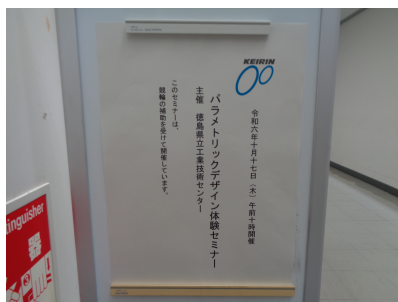 KEIRIN
令和六年十月十七日（木）午前十時開催
パラメトリックデザイン体験セミナー
主催　徳島県立工業技術センター
このセミナーは、
競輪の補助を受けて開催しています。
tinguisher
器